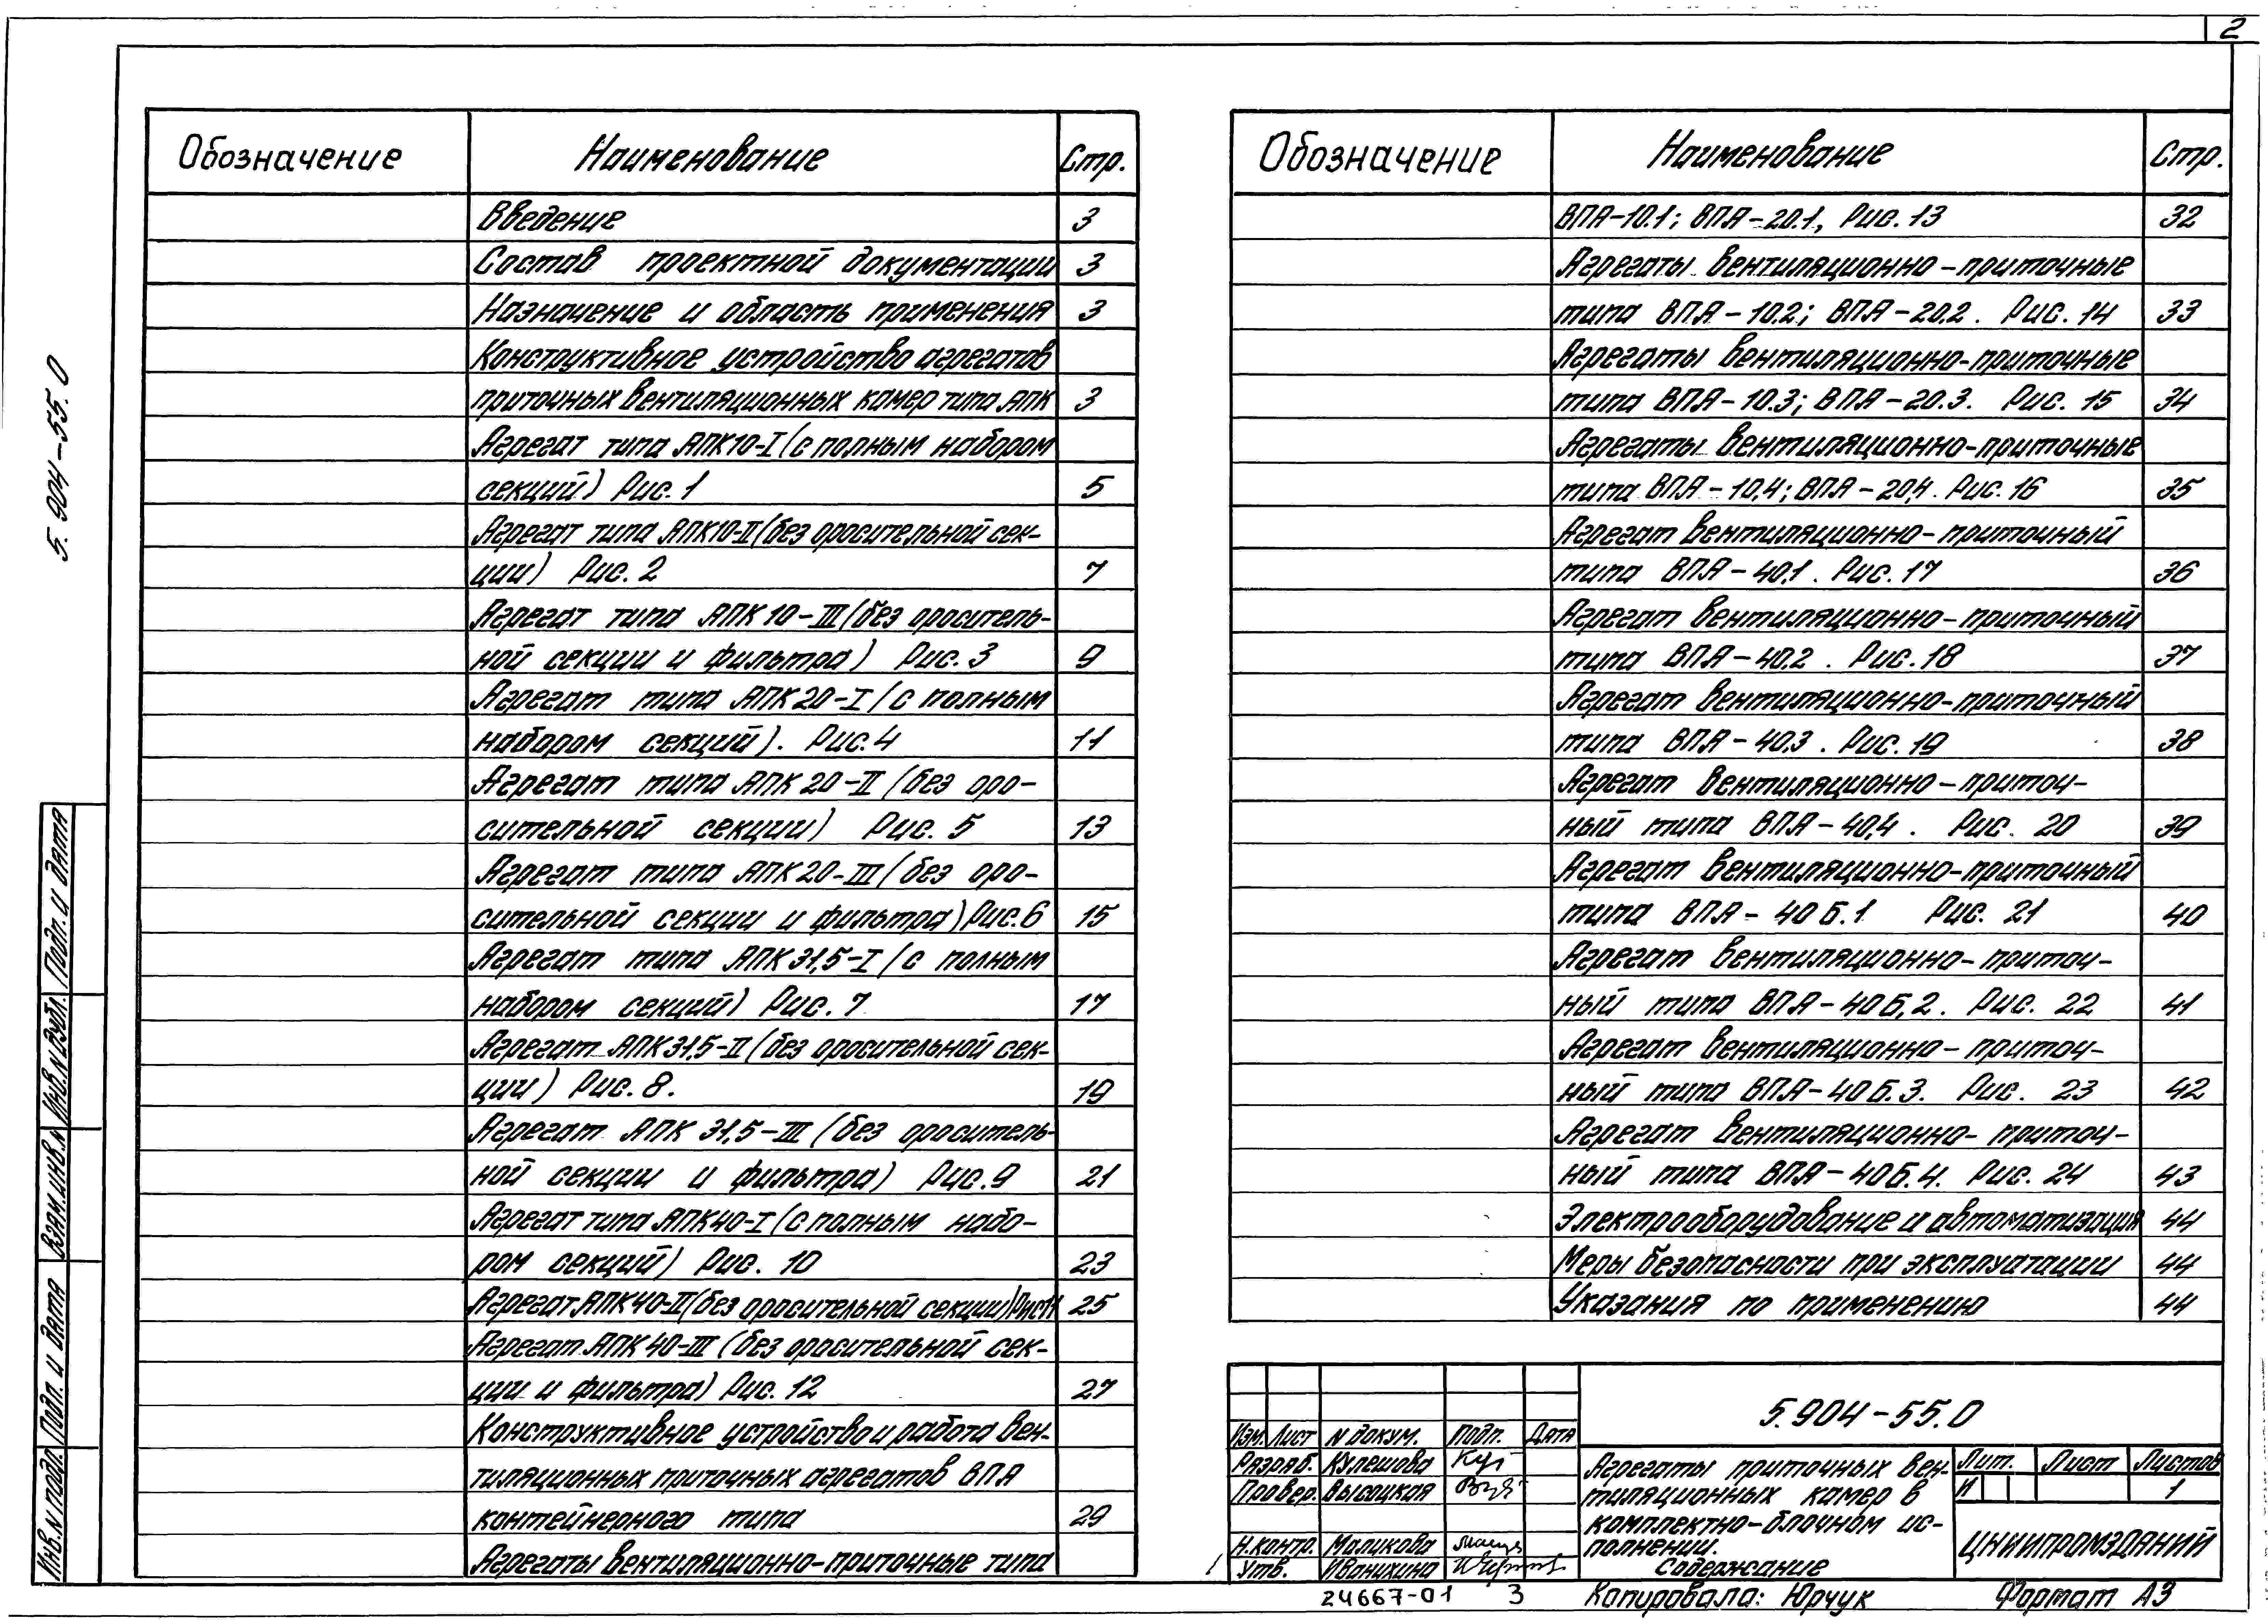 2
Обозначение Наименование Стр.
Введение 3
Состав проектной документации 3
Назначение и область применения 3
Конструктивное устройство агрегатов
приточных вентиляционных камер типа АПК 3
Агрегат типа АПК10-I (с полным набором
секций) Рис. 1 5
Агрегат типа АПК10-II (без оросительной сек-
ции) Рис. 2 7
Агрегат типа АПК 10-III (без ороситель-
ной секции и фильтра) Рис. 3 9
Агрегат типа АПК 20-I (с полным
набором секций). Рис. 4 11
Агрегат типа АПК 20-II (без оро-
сительной секции) Рис. 5 13
Агрегат типа АПК 20-III (без оро-
сительной секции и фильтра) Рис. 6 15
Агрегат типа АПК 31,5-I (с полным
набором секций) Рис. 7 17
Агрегат АПК 31,5-II (без оросительной сек-
ции) Рис. 8. 19
Агрегат АПК 31,5-III (без ороситель-
ной секции и фильтра) Рис. 9 21
Агрегат типа АПК40-I (с полным набо-
ром секций) Рис. 10 23
Агрегат АПК40-II (без оросительной секции) Рис 11 25
Агрегат АПК 40-III (без оросительной сек-
ции и фильтра) Рис. 12 27
Конструктивное устройство и работа вен-
тиляционных приточных агрегатов ВПА
контейнерного типа 29
Агрегаты вентиляционно-приточные типа
Обозначение Наименование Стр.
ВПА-10.1; ВПА-20.1, Рис. 13 32
Агрегаты вентиляционно-приточные
типа ВПА-10.2; ВПА-20.2. Рис. 14 33
Агрегаты вентиляционно-приточные
типа ВПА-10.3; ВПА-20.3. Рис. 15 34
Агрегаты вентиляционно-приточные
типа ВПА-10,4; ВПА-20,4. Рис. 16 35
Агрегат вентиляционно-приточный
типа ВПА-40,1. Рис. 17 36
Агрегат вентиляционно-приточный
типа ВПА-40.2. Рис. 18 37
Агрегат вентиляционно-приточный
типа ВПА-40.3. Рис. 19 38
Агрегат вентиляционно-приточ-
ный типа ВПА-40,4. Рис. 20 39
Агрегат вентиляционно-приточный
типа ВПА-40 Б.1 Рис. 21 40
Агрегат вентиляционно-приточ-
ный типа ВПА-40 Б,2. Рис. 22 41
Агрегат вентиляционно-приточ-
ный типа ВПА-40 Б.3. Рис. 23 42
Агрегат вентиляционно-приточ-
ный типа ВПА-40Б.4. Рис. 24 43
Электрооборудование и автоматизация 44
Меры безопасности при эксплуатации 44
Указания по применению 44
5.904-55.0
Подп. и дата
Инв.N дубл.
Взам.инв.N
Подп. и дата
Инв.N подл.
Изм. Лист N докум. Подп. Дата
Разраб. Кулешова
Провер. Высоцкая
Н.контр. Маликова
Утв. Иванихина
5.904-55.0
Агрегаты приточных вен-
тиляционных камер в
комплектно-блочном ис-
полнении.
Содержание
Лит. Лист Листов
И 1
ЦНИИПРОМЗДАНИЙ
24667-01 3 Копировала: Юрчук Формат А3